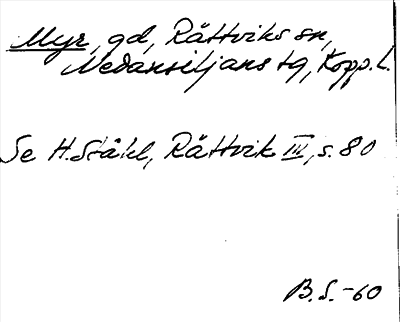 Myr, gd, Rättviks sn,
Nedansiljans tg, Kopp. l.
Se H. Ståhl, Rättvik III, s. 80
B. S. -60